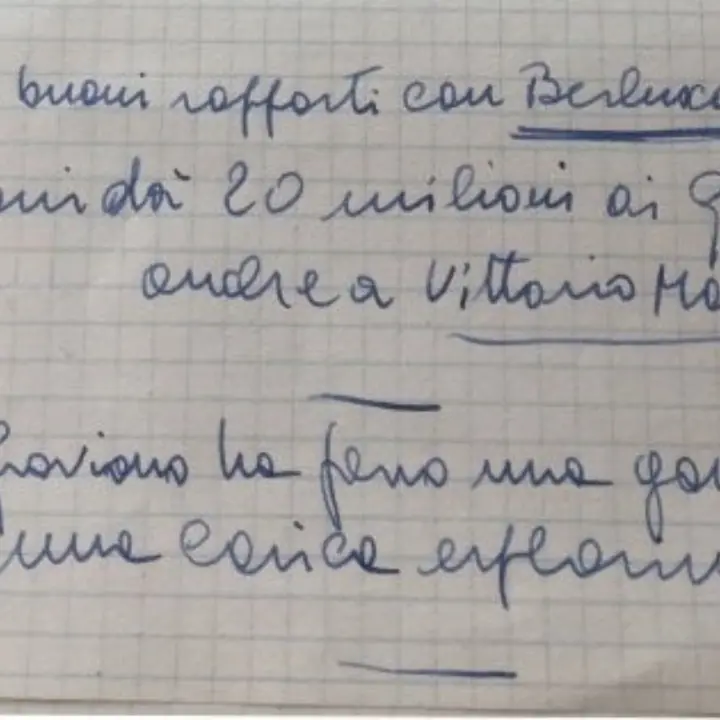 buoni rapporti con Berlusco
mi dà 20 milioni ai G
anche a Vittorio Ma
Graviano ha perso una
una carica esplosiv